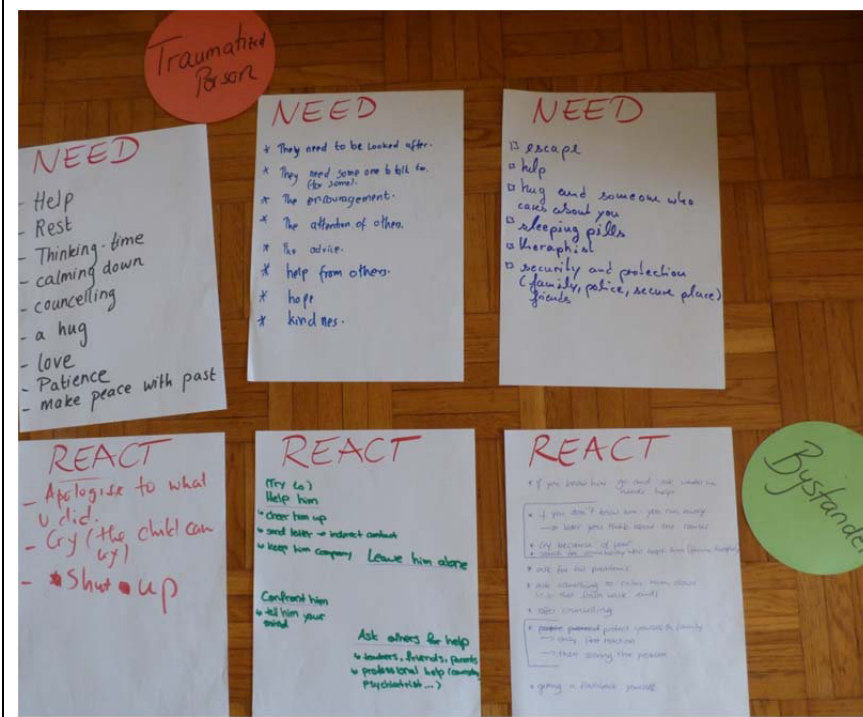 Traumatized
Person
NEED
- Help
- Rest
- Thinking-time
- calming down
- councelling
- a hug
- love
- Patience
- make peace with past
NEED
* They need to be looked after.
* They need some one to talk to.
(for some).
* The encouragement.
* The attention of others.
* The advice.
* help from others.
* hope
* kindnes.
NEED
escape
help
hug and someone who
cares about you
sleeping pills
theraphist
security and protection
(family, police, secure place)
friends
REACT
- Apologise to what
u did.
- Cry (the child can
cry)
- Shut up
REACT
(Try to)
Help him
cheer him up
send letter → indirect contact
keep him company
Leave him alone
Confront him
tell him your
mind
Ask others for help
teachers, friends, parents
professional help
psychiatrist ...)
REACT
* if you know him go and ask
needs help
* if you don't know him you run away
→ you think about the
* cry because of fear
* ask for his problems
* ask something to calm him down
* offer counselling
* protect yourself & family
→ only
→ then
* getting a
Bystander